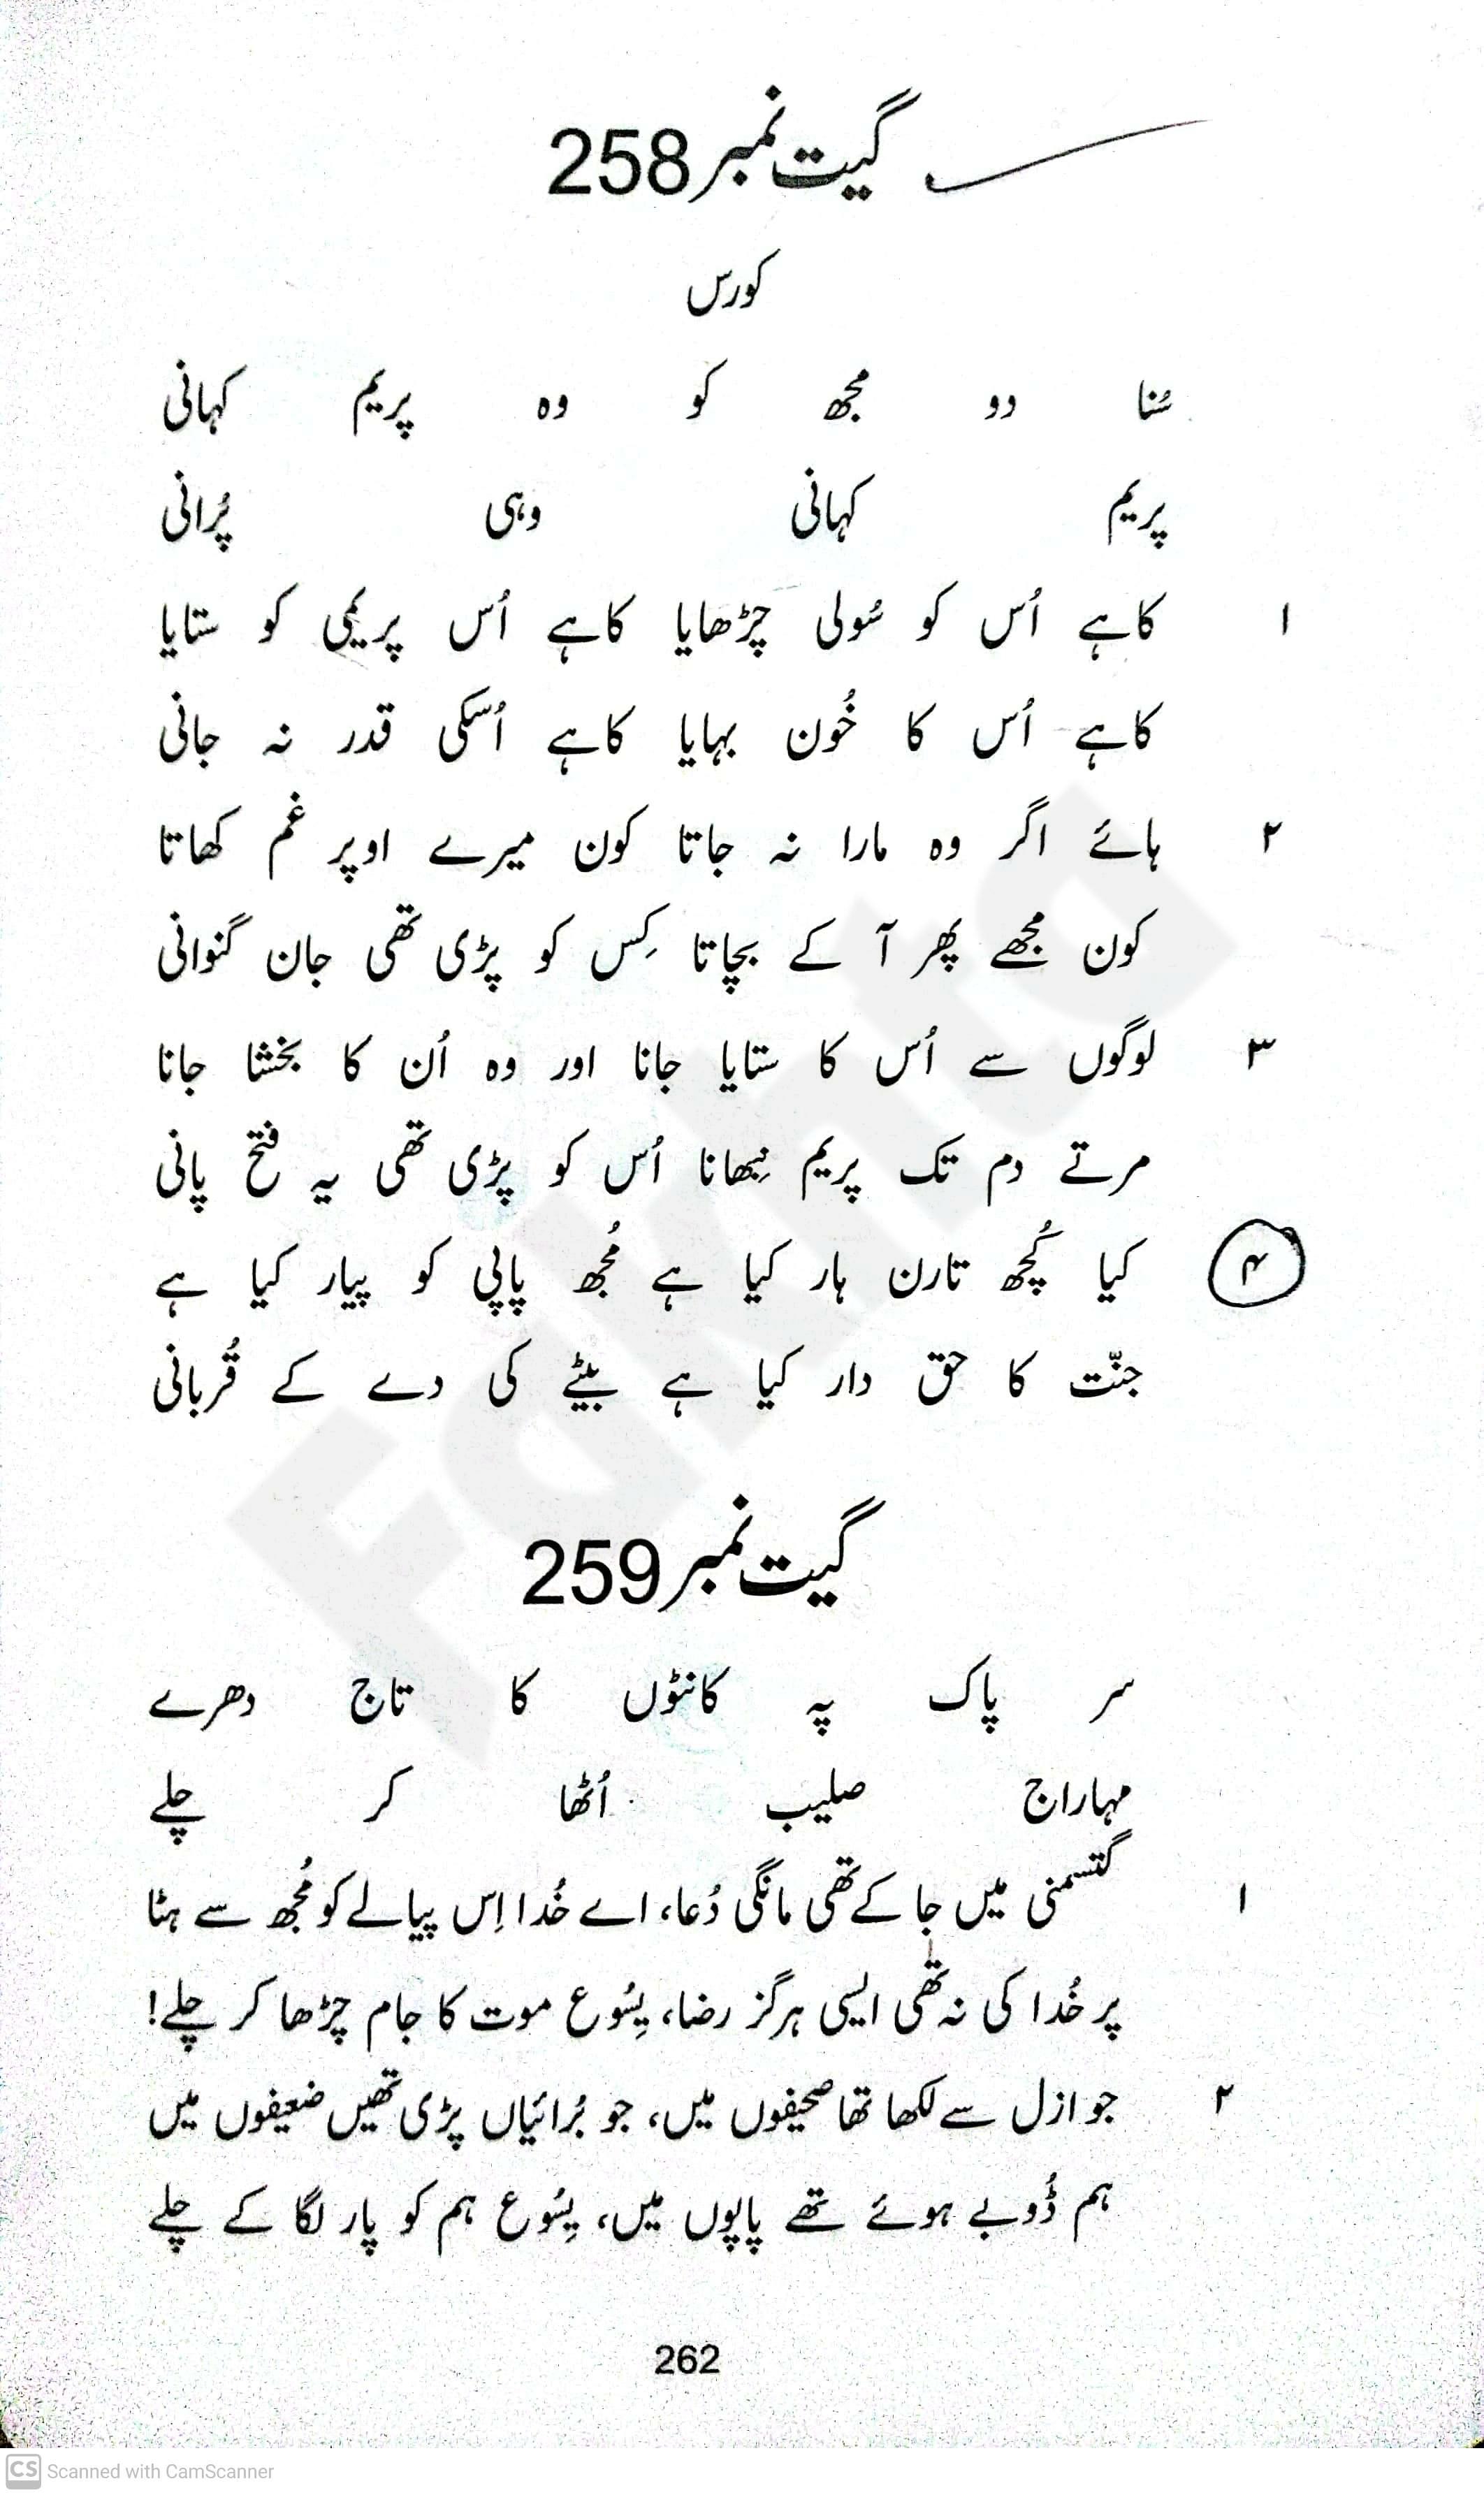 گیت نمبر 258
کورس
سُنا دو مجھ کو وہ پریم کہانی
پریم کہانی وہی پُرانی
۱ کاہے اُس کو سُولی چڑھایا کاہے اُس پریمی کو ستایا
کاہے اُس کا خُون بہایا کاہے اُسکی قدر نہ جانی
۲ ہائے اگر وہ مارا نہ جاتا کون میرے اوپر غم کھاتا
کون مجھے پھر آ کے بچاتا کِس کو پڑی تھی جان گنوانی
۳ لوگوں سے اُس کا ستایا جانا اور وہ اُن کا بخشا جانا
مرتے دم تک پریم نِبھانا اُس کو پڑی تھی یہ فتح پانی
۴ کیا کُچھ تارن ہار کیا ہے مُجھ پاپی کو پیار کیا ہے
جنّت کا حق دار کیا ہے بیٹے کی دے کے قُربانی
گیت نمبر 259
سر پاک پہ کانٹوں کا تاج دھرے
مہاراج صلیب اُٹھا کر چلے
۱ گتسمنی میں جا کے تھی مانگی دُعا، اے خُدا اِس پیالے کو مُجھ سے ہٹا
پر خُدا کی نہ تھی ایسی ہرگز رضا، یِسُوع موت کا جام چڑھا کر چلے!
۲ جو ازل سے لکھا تھا صحیفوں میں، جو بُرائیاں پڑی تھیں ضعیفوں میں
ہم ڈُوبے ہوئے تھے پاپوں میں، یِسُوع ہم کو پار لگا کے چلے
262
Fakhta
CS Scanned with CamScanner